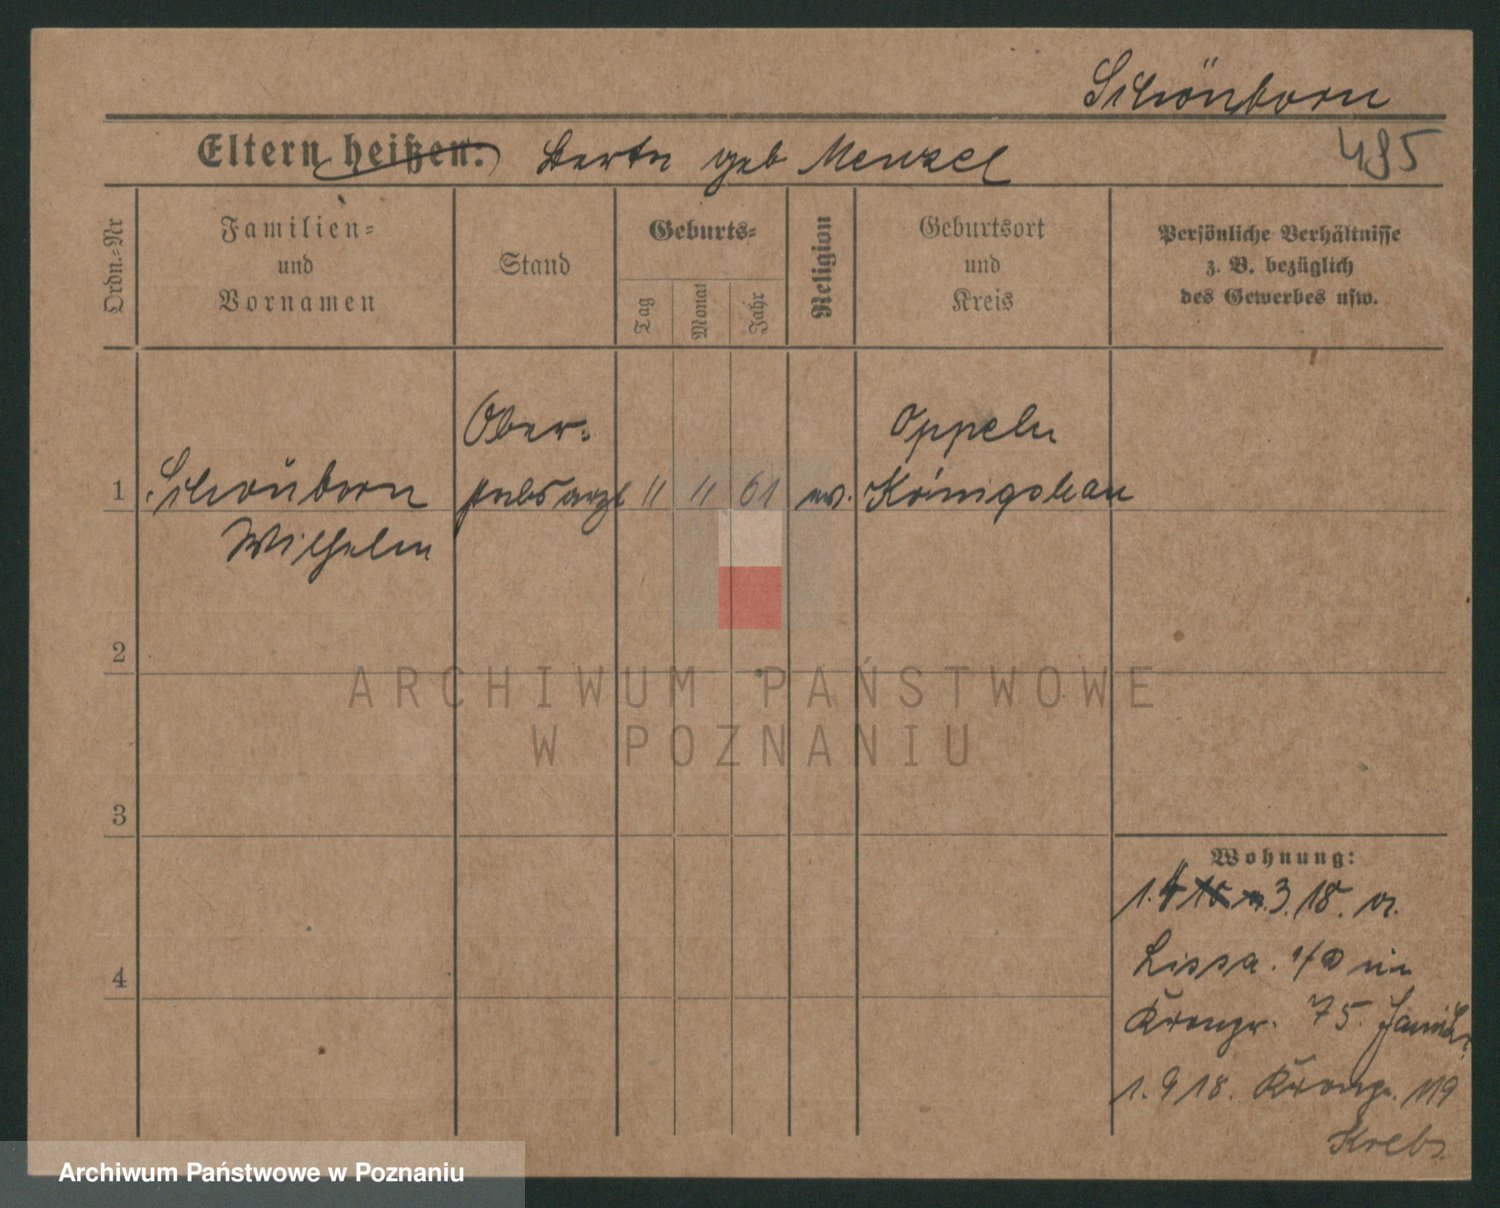 Schönborn
Eltern heißen: Herta geb Menzel
495
Ordn.=Nr
Familien=
und
Vornamen
Stand
Geburts=
Tag
Monat
Jahr
Religion
Geburtsort
und
Kreis
Persönliche Verhältnisse
z. B. bezüglich
des Gewerbes usw.
Ober=
Oppeln
1 Schönborn stabsarzt 11 11 61 ev.
Wilhelm
2
ARCHIWUM PAŃSTWOWE
W POZNANIU
3
4
Wohnung:
1. 3. 18. v.
Lissa. in
Kronpr. 75.
1. 9 18. Kronpr. 119
Krebs
Archiwum Państwowe w Poznaniu